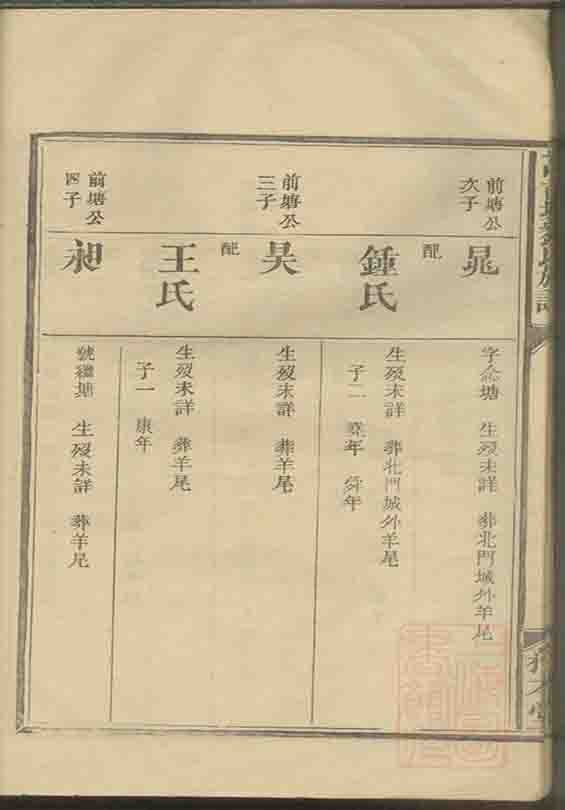 前塘公
次子
晁
字念塘 生歿未詳 葬北門城外羊尾
配
鍾氏
生歿未詳 葬北門城外羊尾
子二 堯年 舜年
前塘公
三子
昊
生歿未詳 葬羊尾
配
王氏
生歿未詳 葬羊尾
子一 康年
前塘公
四子
昶
號繼塘 生歿未詳 葬羊尾